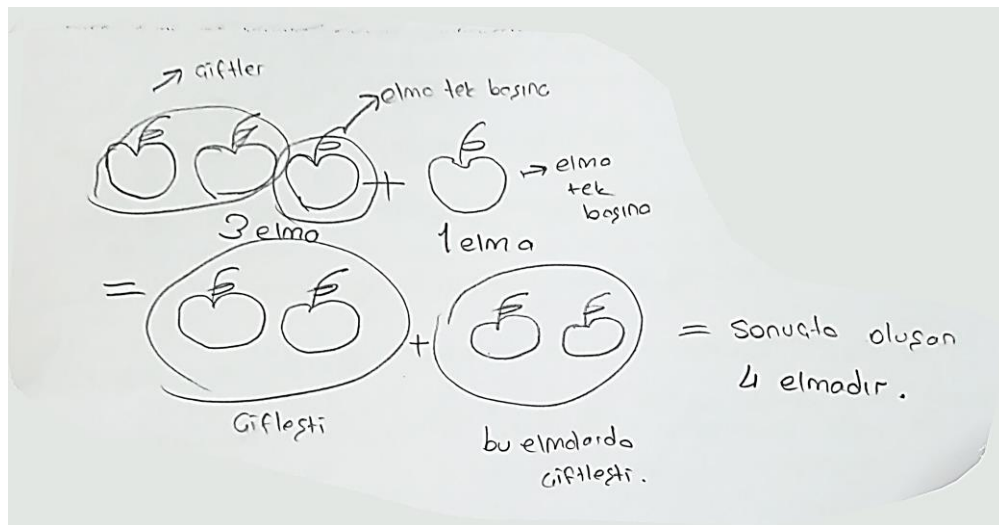 çiftler
elma tek başına
+
elma
tek
başına
3 elma
1 elma
=
+
= Sonuçta oluşan
4 elmadır.
Çifleşti
bu elmalarda
çiftleşti.